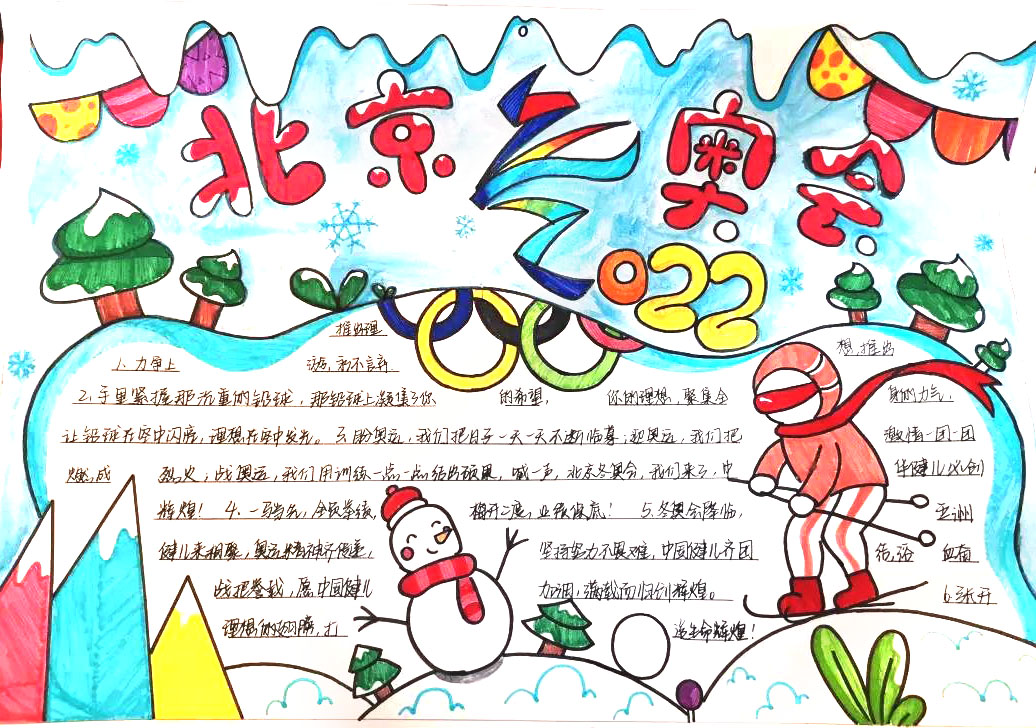 北京 奥会
2022
推出理
1、力争上 想,推出
2、手里紧握那沉重的铅球,那铅球上凝集了你 的希望, 你的理想,聚集全 身的力气,
让铅球在空中闪亮,理想在空中发光。 3、盼奥运,我们把日子一天一天不断临摹;迎奥运,我们把 激情一团一团
燃成 烈火;战奥运,我们用训练一点一点结出硕果,喊一声,北京冬奥会,我们来了,中 华健儿必创
辉煌! 4、一马当先,全级举绩, 梅开二度,业绩保底! 5、冬奥会降临, 亚洲
健儿来相聚,奥运精神齐传递, 坚持努力不畏难,中国健儿齐团 结,浴血奋
战把誉载,愿中国健儿 加油,满载而归创辉煌。 6、张开
理想的 打 造生命辉煌!